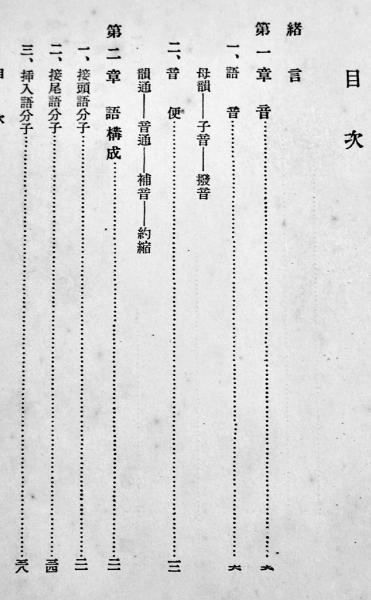 目次
緒言
第一章 音……六
一、語音……六
母韻――子音――撥音
二、音便……
韻通――音通――補音――約縮
第二章 語構成……
一、接頭語分子……
二、接尾語分子……
三、挿入語分子……
目次